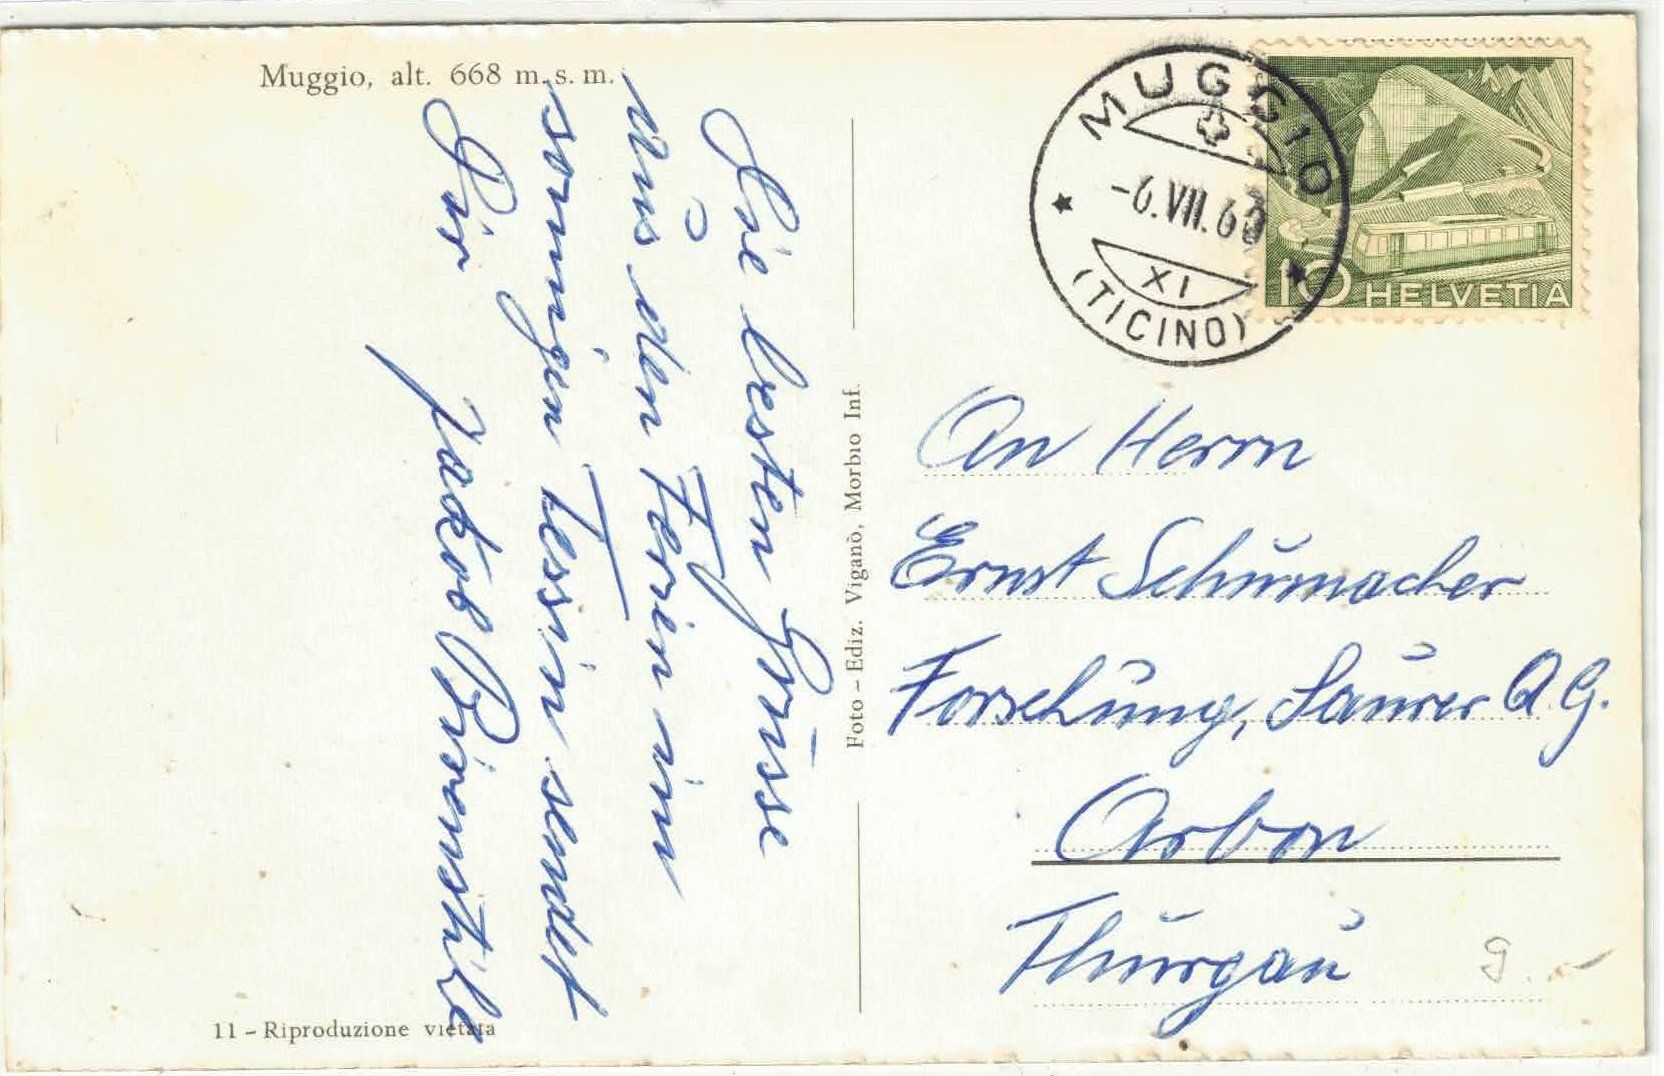 Muggio, alt. 668 m. s. m.
Die besten Grüsse
aus den Ferien im
sonnigen Tessin sendet
Dir Jakob
11 - Riproduzione vietata
Foto - Ediz. Viganò, Morbio Inf.
MUGGIO
-6.VII.60
XI
(TICINO)
10 HELVETIA
An Herrn
Ernst Schumacher
Forschung, Saurer A.G.
Arbon
Thurgau
9.-